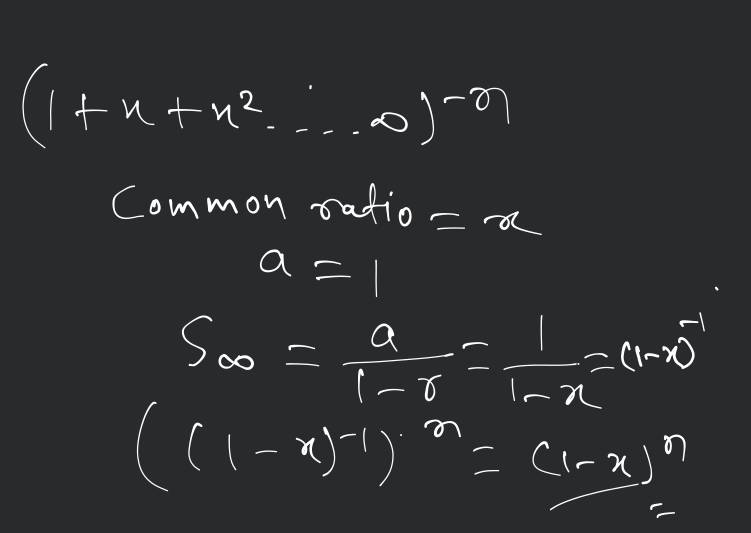 (1+x+x².......∞)⁻ⁿ
Common ratio = x
a = 1
S∞ = a/(1-r) = 1/(1-x) = (1-x)⁻¹
((1-x)⁻¹)ⁿ = (1-x)ⁿ